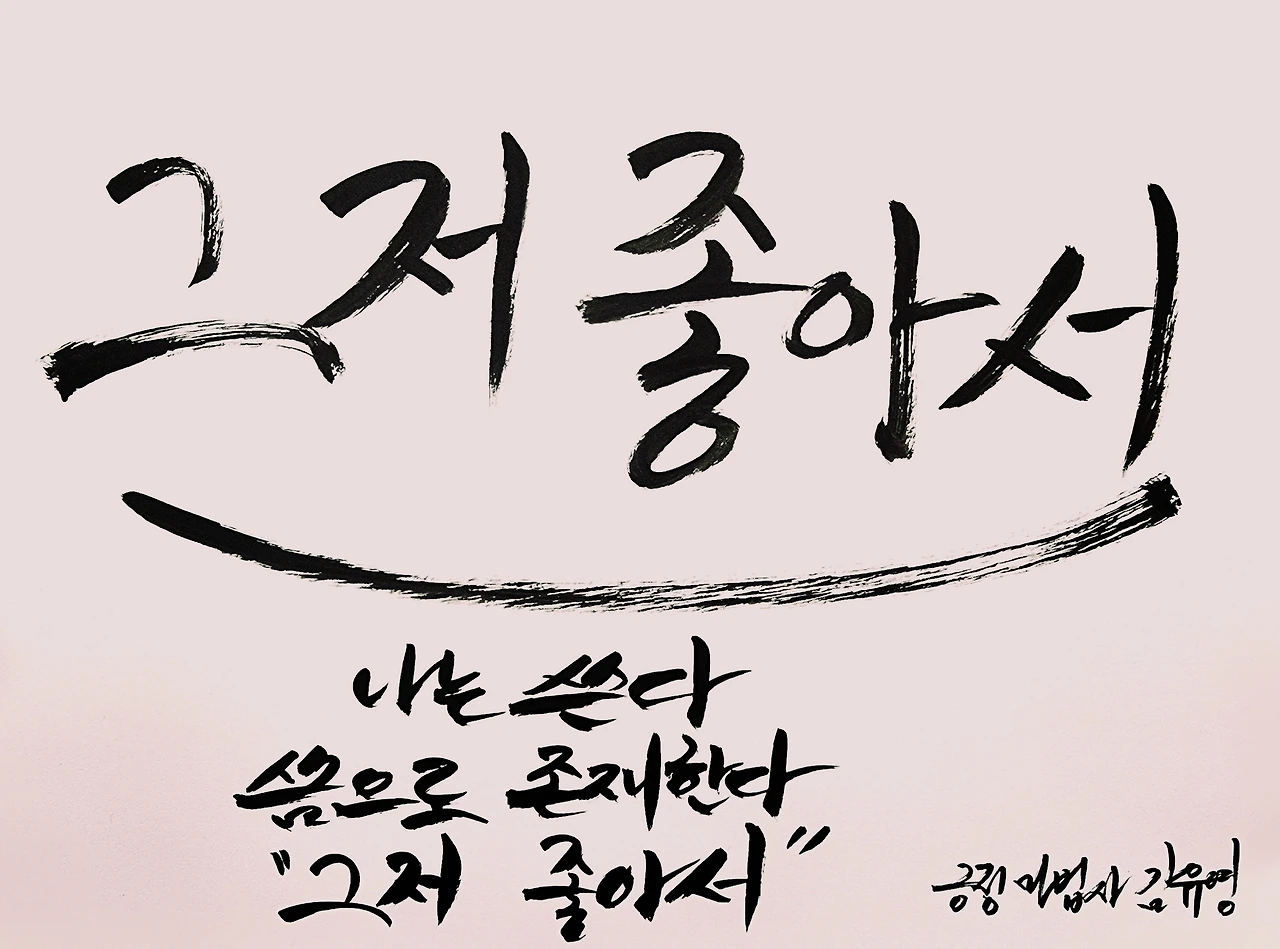 그저 좋아서
나는 쓴다
씀으로 존재한다
"그저 좋아서"
긍정 마법사 김유영